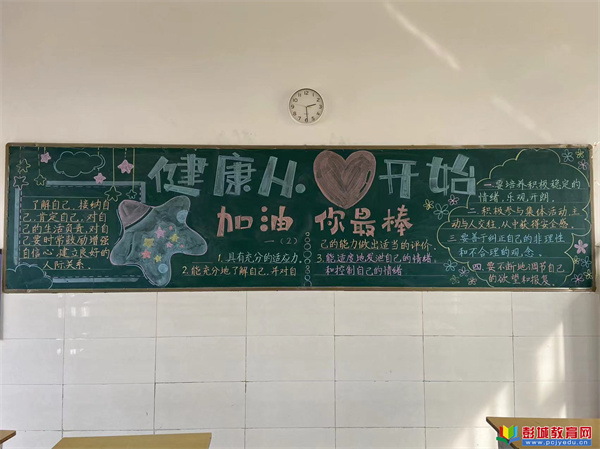 健康从 开始
加油 你最棒
一(2)
了解自己、接纳自
己、肯定自己、对自
己的生活负责,对自
己要时常鼓励增强
自信心,建立良好的
人际关系。
1.具有充分的适应力。
2.能充分地了解自己,并对自
己的能力做出适当的评价。
3.能适度地发泄自己的情绪。
和控制自己的情绪
一.要培养积极稳定的
情绪,乐观,开朗。
二.积极参与集体活动,主
动与人交往,人中获得安全感。
三.要善于纠正自己的非理性
和不合理的观念。
四.要不断地调节自己
的欲望和报复。
彭城教育网
www.pcjyedu.cn